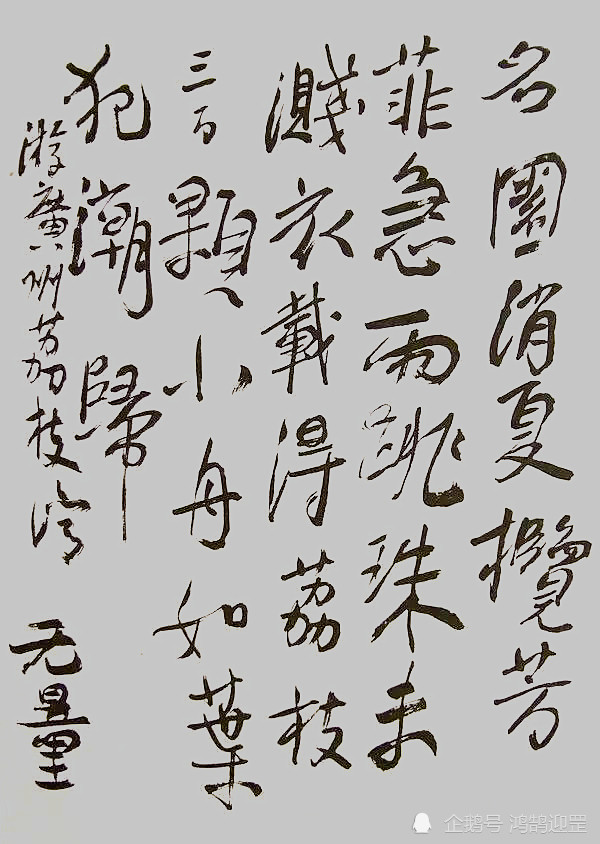 名園消夏攬芳
菲急雨跳珠未
濺衣載得荔枝
三百顆小舟如葉
犯潮歸
游廣州荔枝灣 无量
企鹅号 鸿鹄迎罡